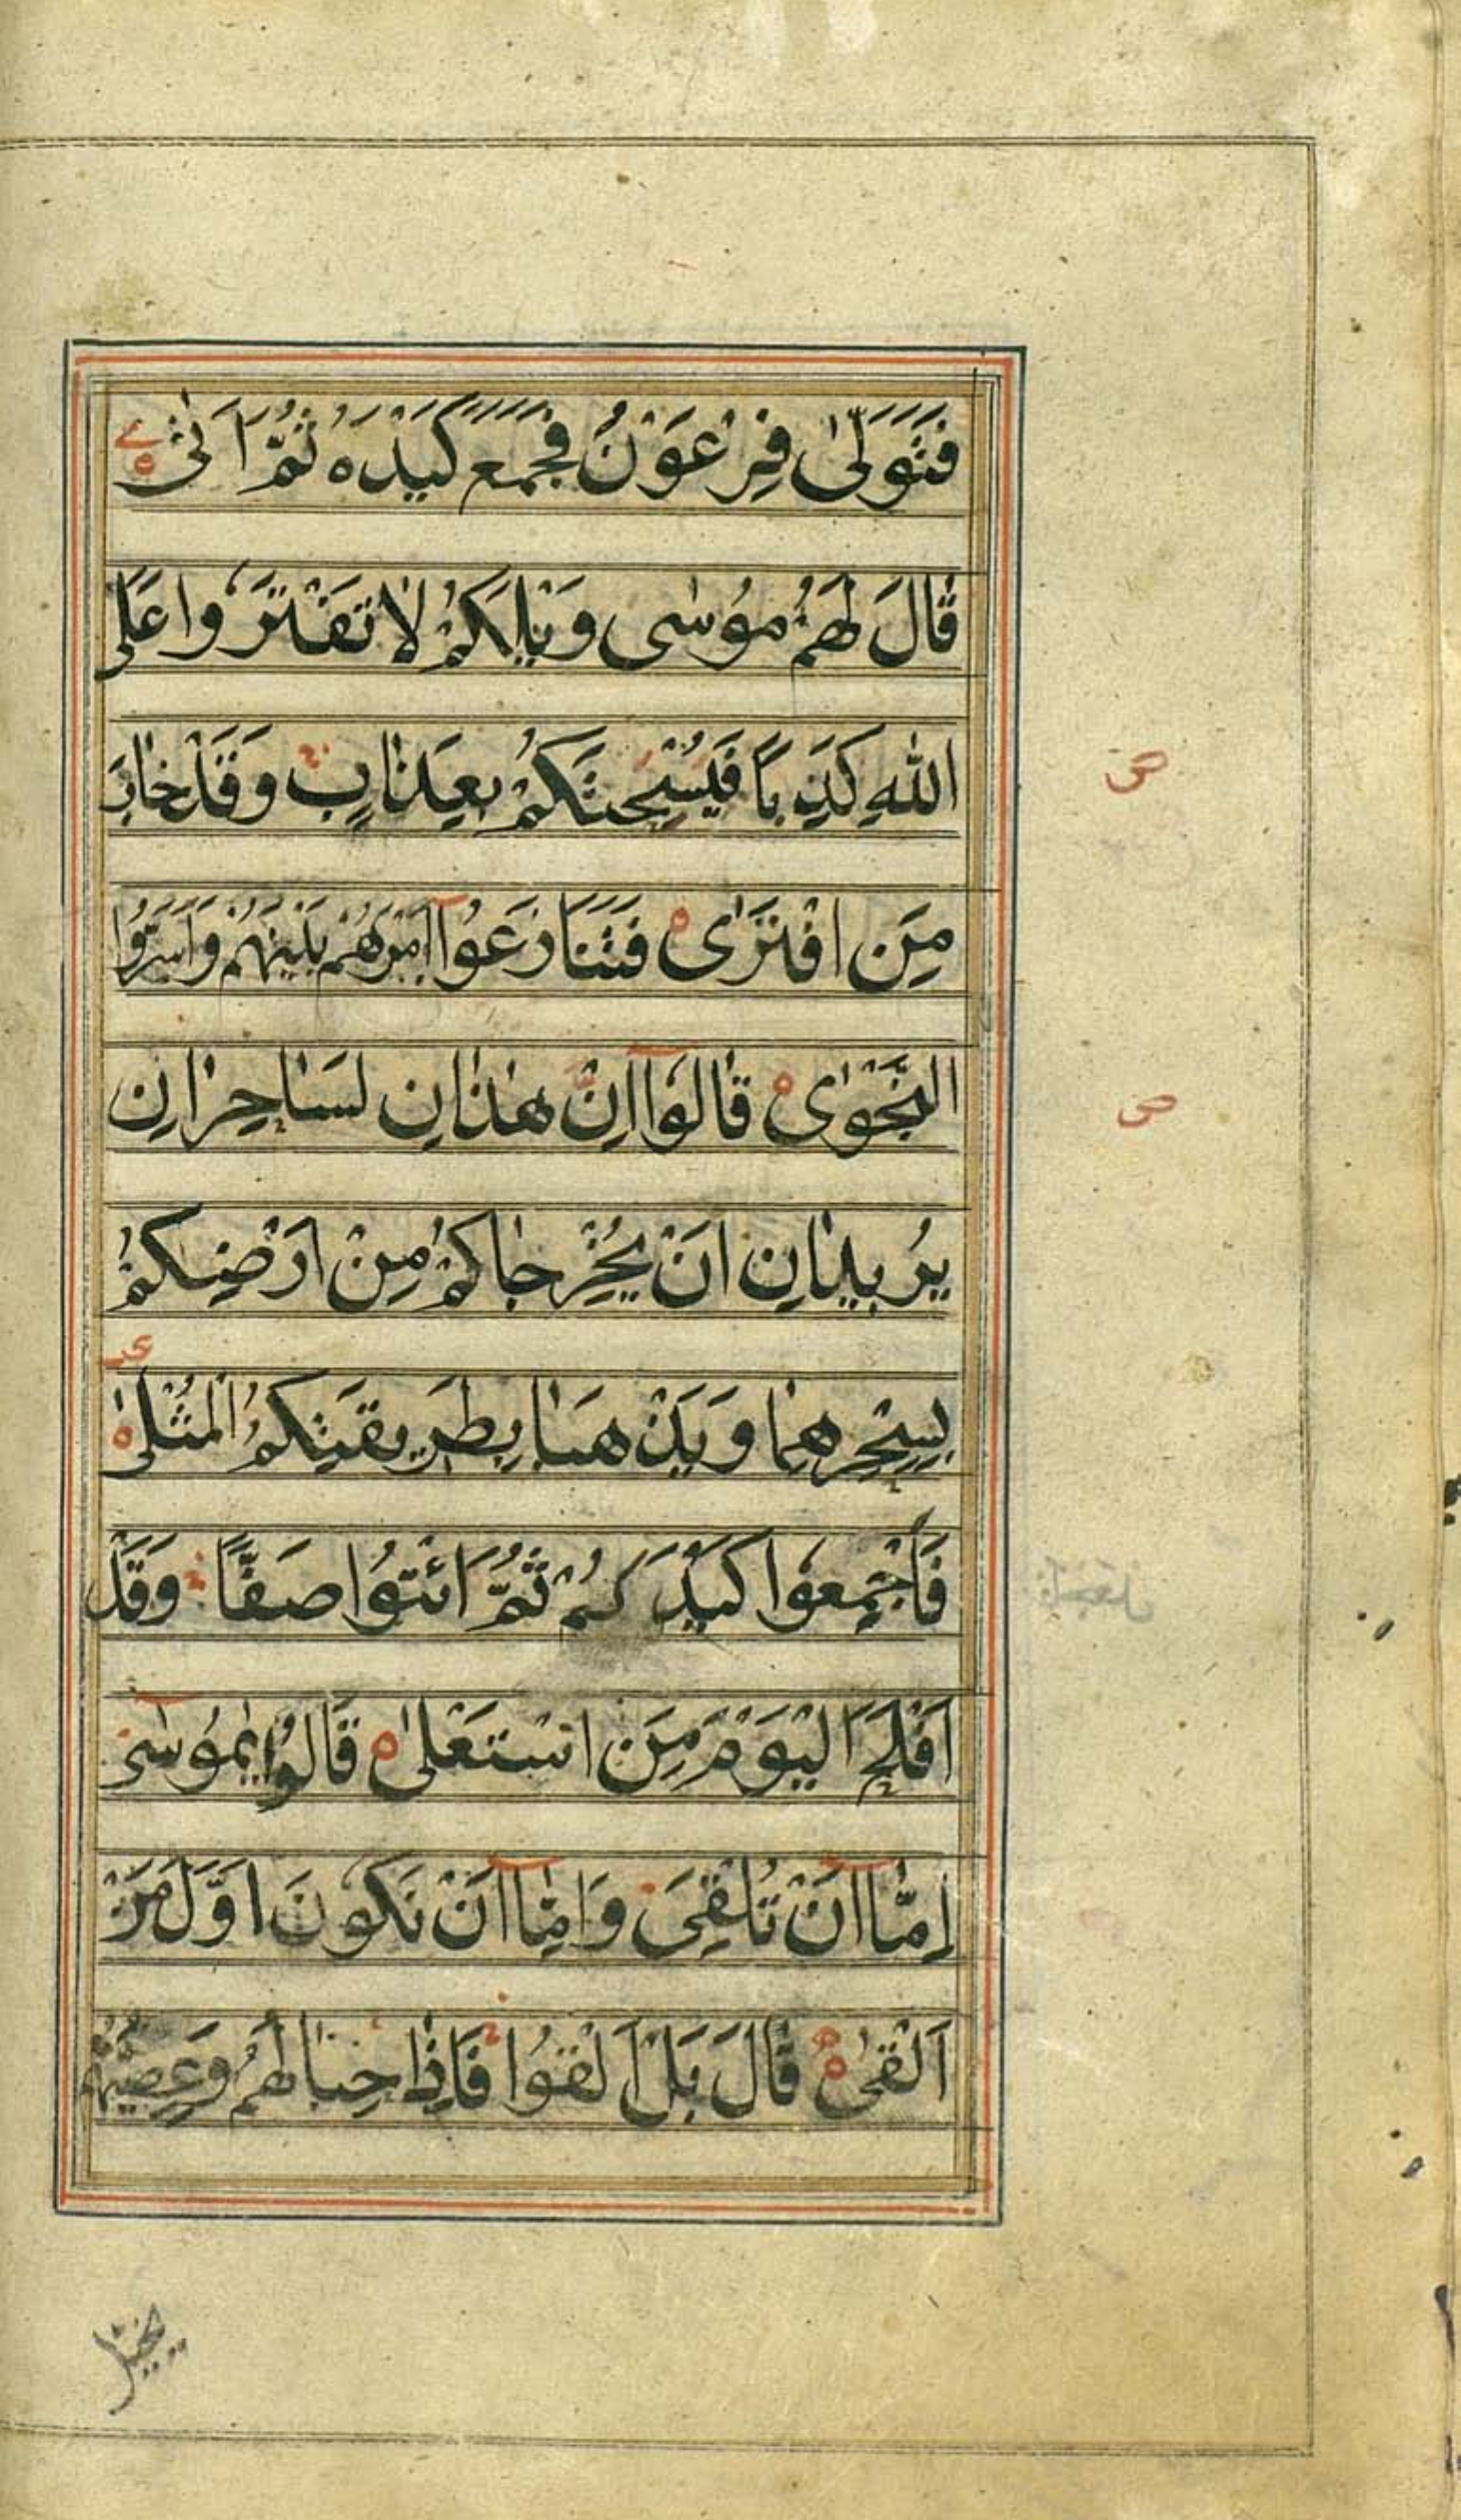 فَتَوَلّٰى فِرْعَوْنُ فَجَمَعَ كَيْدَهٗ ثُمَّ اَتٰى
قَالَ لَهُمْ مُوْسٰى وَيْلَكُمْ لَا تَفْتَرُوا عَلَى
اللّٰهِ كَذِبًا فَيُسْحِتَكُمْ بِعَذَابٍ وَقَدْ خَابَ
مَنِ افْتَرٰى فَتَنَازَعُوا اَمْرَهُمْ بَيْنَهُمْ وَاَسَرُّوا
النَّجْوٰى قَالُوا اِنْ هٰذَانِ لَسَاحِرَانِ
يُرِيدَانِ اَنْ يُخْرِجَاكُمْ مِنْ اَرْضِكُمْ
بِسِحْرِهِمَا وَيَذْهَبَا بِطَرِيقَتِكُمُ الْمُثْلٰى
فَاَجْمِعُوا كَيْدَكُمْ ثُمَّ ائْتُوا صَفًّا وَقَدْ
اَفْلَحَ الْيَوْمَ مَنِ اسْتَعْلٰى قَالُوا يٰمُوسٰى
اِمَّا اَنْ تُلْقِيَ وَاِمَّا اَنْ نَكُونَ اَوَّلَ مَنْ
اَلْقٰى قَالَ بَلْ اَلْقُوا فَاِذَا حِبَالُهُمْ وَعِصِيُّهُمْ
يخيل
ص
ص